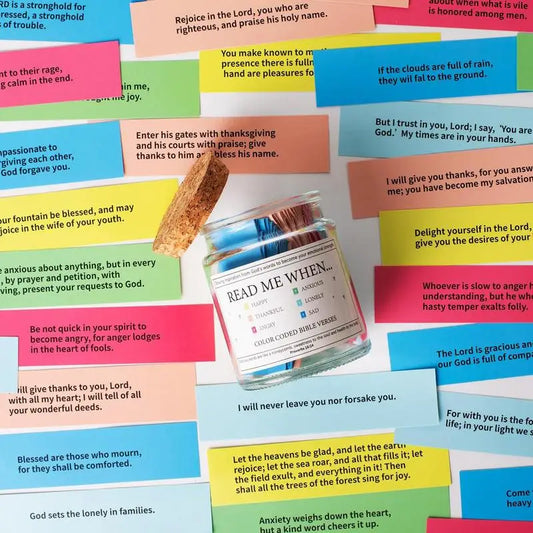 RD is a stronghold for
ressed, a stronghold
s of trouble.
Rejoice in the Lord, you who are
righteous, and praise his holy name.
about when what is vile
is honored among men.
nt to their rage,
g calm in the end.
in me,
ught me joy.
You make known to m
presence there is fulln
hand are pleasures fo
If the clouds are full of rain,
they wil fal to the ground.
mpassionate to
rgiving each other,
God forgave you.
Enter his gates with thanksgiving
and his courts with praise; give
thanks to him and bless his name.
But I trust in you, Lord; I say, 'You are
God.' My times are in your hands.
I will give you thanks, for you answ
me; you have become my salvation
our fountain be blessed, and may
ejoice in the wife of your youth.
Delight yourself in the Lord,
give you the desires of your
e anxious about anything, but in every
, by prayer and petition, with
iving, present your requests to God.
Whoever is slow to anger h
understanding, but he wh
hasty temper exalts folly.
READ ME WHEN...
HAPPY
ANXIOUS
THANKFUL
LONELY
ANGRY
SAD
COLOR CODED BIBLE VERSES
Proverbs 16:24
Be not quick in your spirit to
become angry, for anger lodges
in the heart of fools.
The Lord is gracious an
our God is full of compa
will give thanks to you, Lord,
with all my heart; I will tell of all
your wonderful deeds.
I will never leave you nor forsake you.
For with you is the fo
life; in your light we s
Blessed are those who mourn,
for they shall be comforted.
Let the heavens be glad, and let the earth
rejoice; let the sea roar, and all that fills it; let
the field exult, and everything in it! Then
shall all the trees of the forest sing for joy.
Come
heavy
God sets the lonely in families.
Anxiety weighs down the heart,
but a kind word cheers it up.